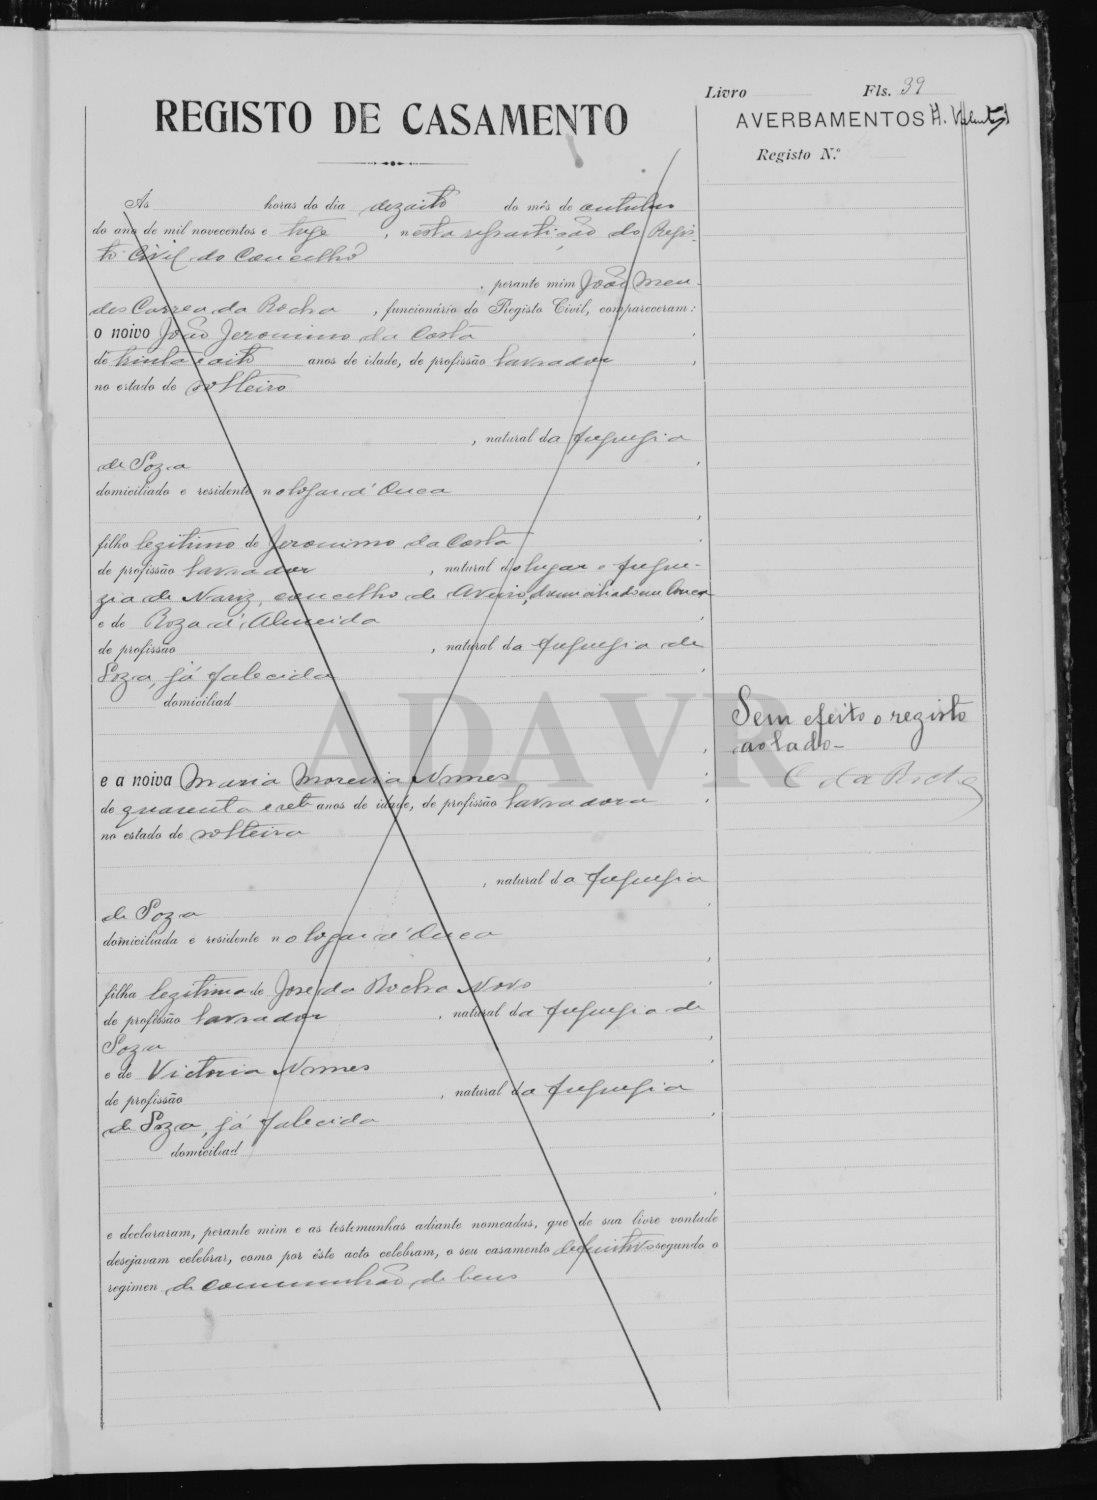 Livro Fls. 39
REGISTO DE CASAMENTO
AVERBAMENTOS H.
Registo N.º
As horas do dia dezaito do mês de outubro
do ano de mil novecentos e treze, nesta repartição do Regis-
to Civil do Concelho
, perante mim João Men-
des Correa da Rocha, funcionário do Registo Civil, compareceram:
o noivo João Jeronimo da Costa,
de trinta e oito anos de idade, de profissão lavrador,
no estado de solteiro
, natural da freguesia
de Soza,
domiciliado e residente no logar d'Ouca
,
filho legitimo de Jeronimo da Costa,
de profissão lavrador, natural do lugar e fregue-
zia de Nariz, concelho de Aveiro, domiciliado em Ouca
e de Roza d'Almeida,
de profissão, natural da freguesia de
Soza, já falecida,
domiciliad
,
e a noiva Maria Moreira Nunes,
de quarenta e sete anos de idade, de profissão lavradora,
no estado de solteira
, natural da freguesia
de Soza,
domiciliada e residente no logar d'Ouca
,
filha legitima de José da Rocha Novo,
de profissão lavrador, natural da freguesia de
Soza,
e de Victoria Nunes,
de profissão, natural da freguesia
de Soza, já falecida,
domiciliad
,
e declararam, perante mim e as testemunhas adiante nomeadas, que de sua livre vontade
desejavam celebrar, como por êste acto celebram, o seu casamento definitivo segundo o
regimen de comunhão de bens
Sem efeito o registo
ao lado-
C da Rocha
ADAVR